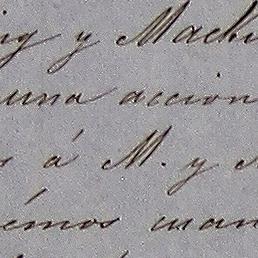 y Mach
una accion
á M. y
émos man